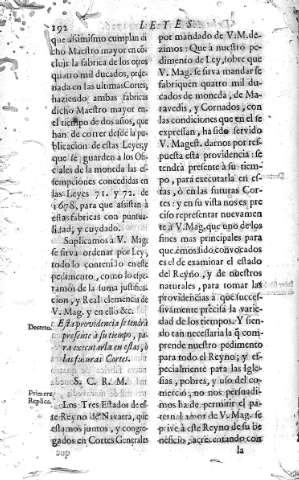 192
LEYES.
que asimismo cumplan di
cho Maestro mayor en co
cluir la fabrica de los otros
quatro mil ducados, orde
nada en las ultimas Cortes,
haziendo ambas fabricas
dicho Maestro mayor en
el tiempo de dos años, que
han de correr desde la pu
blicacion de estas Leyes, y
que se guarden a los Ofi
ciales de la moneda las es
sempciones concedidas en
las Leyes 71. y 72. de
1678, para que asistan à
estas fabricas con puntua
lidad, y cuydado.
Suplicamos à V. Mag.
se sirva ordenar por Ley,
todo lo contenido en este
pedimento, como lo espe
ramos de la suma justifica
cion, y Real clemencia de
V. Mag. y en ello &c.
Decreto.
Esta providencia se tendrà
presente à su tiempo, pa
ra executarla en estas, ò
las futuras Cortes.
S. C. R. M.
Primera
Replica.
Los Tres Estados de es
te Reyno de Navarra, que
estamos juntos, y congre
gados en Cortes Generales
por mandado de V. M. de
zimos: Que à nuestro pe
dimento de Ley, sobre que
V. Mag. se sirva mandar se
fabriquen quatro mil du
cados de moneda, de Ma
ravedis, y Cornados, con
las condiciones que en el se
expressan, ha sido servido
V. Magest. darnos por res
puesta esta providencia: se
tendrà presente à su tiem
po, para executarla en es
tas, ò en las futuras Cor
tes: y en su vista nos es pre
ciso representar nuevamen
te à V. Mag. que uno de los
fines mas principales para
que emos sido convocados
es el de examinar el estado
del Reyno, y de nuestros
naturales, para tomar las
providencias à que succes-
sivamente precisa la varie
dad de los tiempos. Y sien
do tan necesaria la q̃ com
prende nuestro pedimento
para todo el Reyno; y es
pecialmente para las Igle
sias, pobres, y uso del co
mercio, no nos persuadi
mos ha de permitir el pa
ternal amor de V. Mag. se
prive à este Reyno de su be
neficio, acrecentando con
la